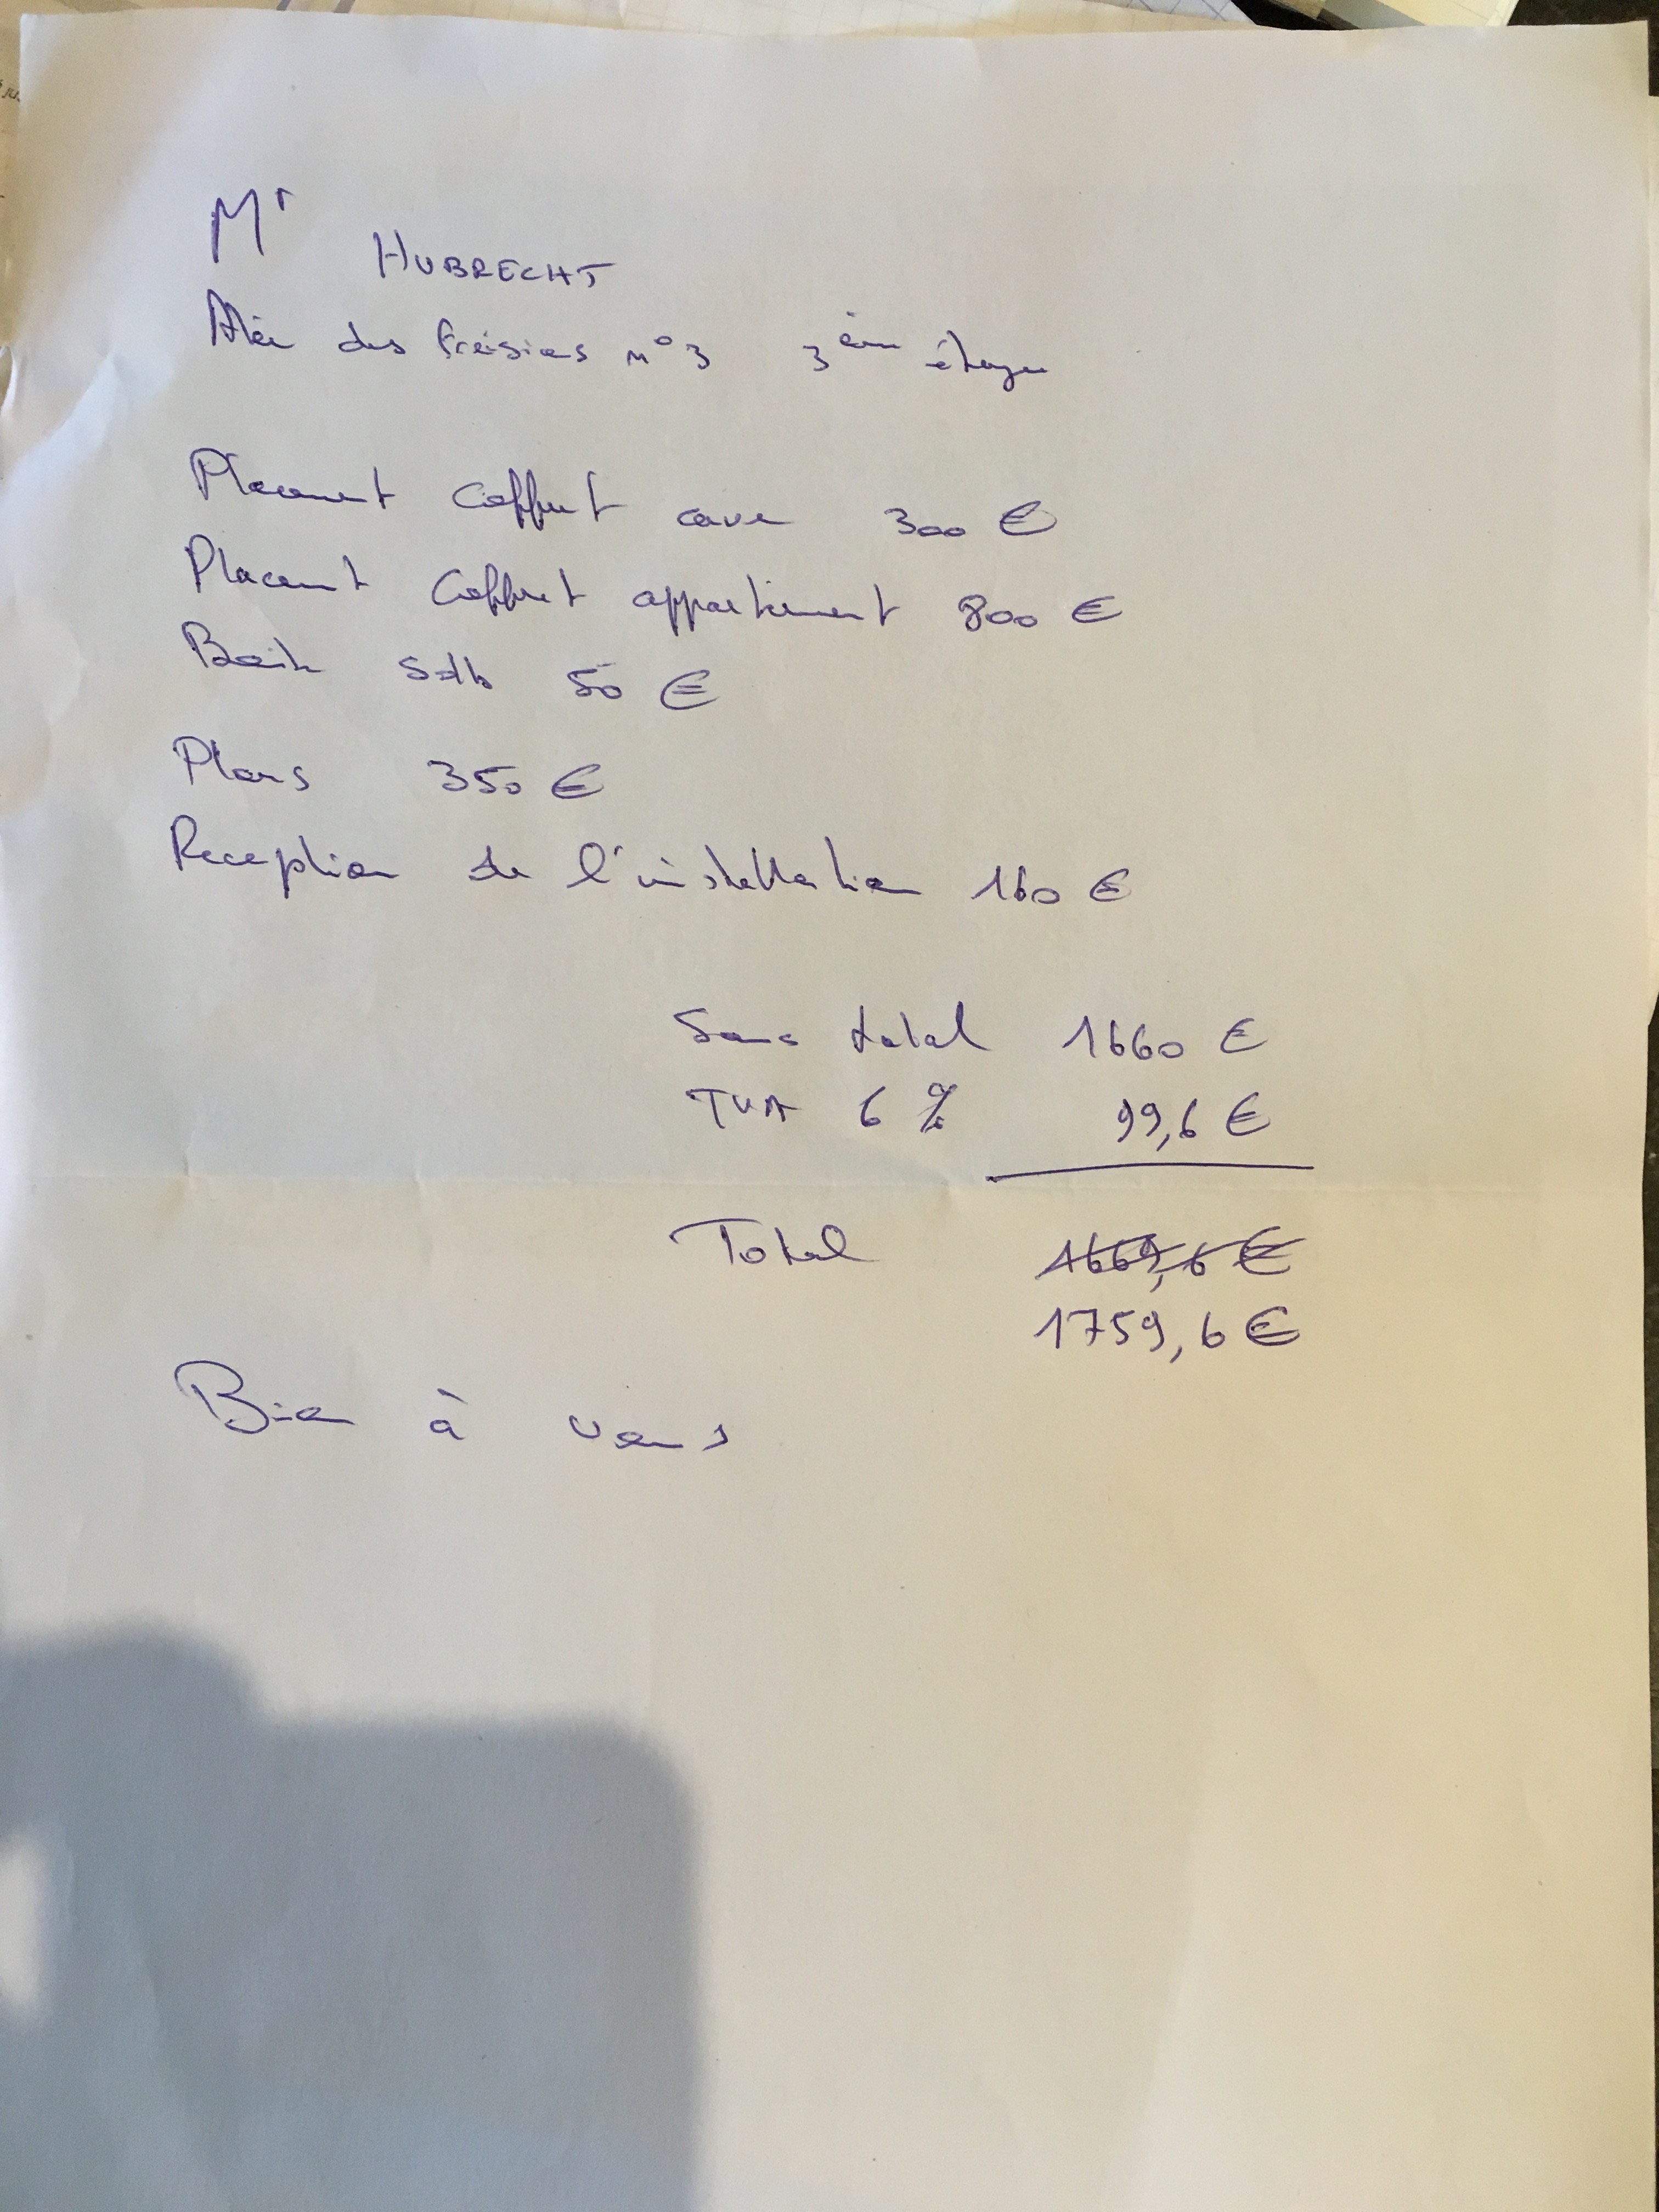 Mr
HUBRECHT
Allée des freisias n° 3 3ème étage
Placement coffret cave 300 €
Placement coffret appartement 800 €
Boite sdb 50 €
Plans 350 €
Reception de l'installation 160 €
Sous total 1660 €
TVA 6 % 99,6 €
Total 1669,6 €
1759,6 €
Bien à vous